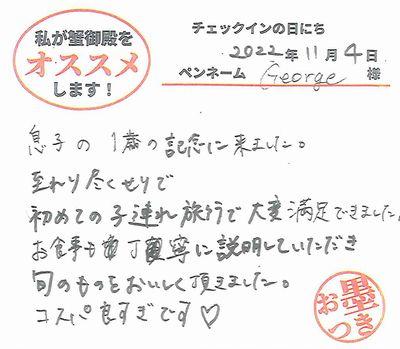 私が蟹御殿を
オススメ
します!
チェックインの日にち
2022年11月4日
ペンネーム George 様
息子の1歳の記念に来ました。
至れり尽くせりで
初めての子連れ旅行で大変満足できました。
お食事も丁寧に説明していただき
旬のものをおいしく頂きました。
コスパ良すぎです♡
お墨つき